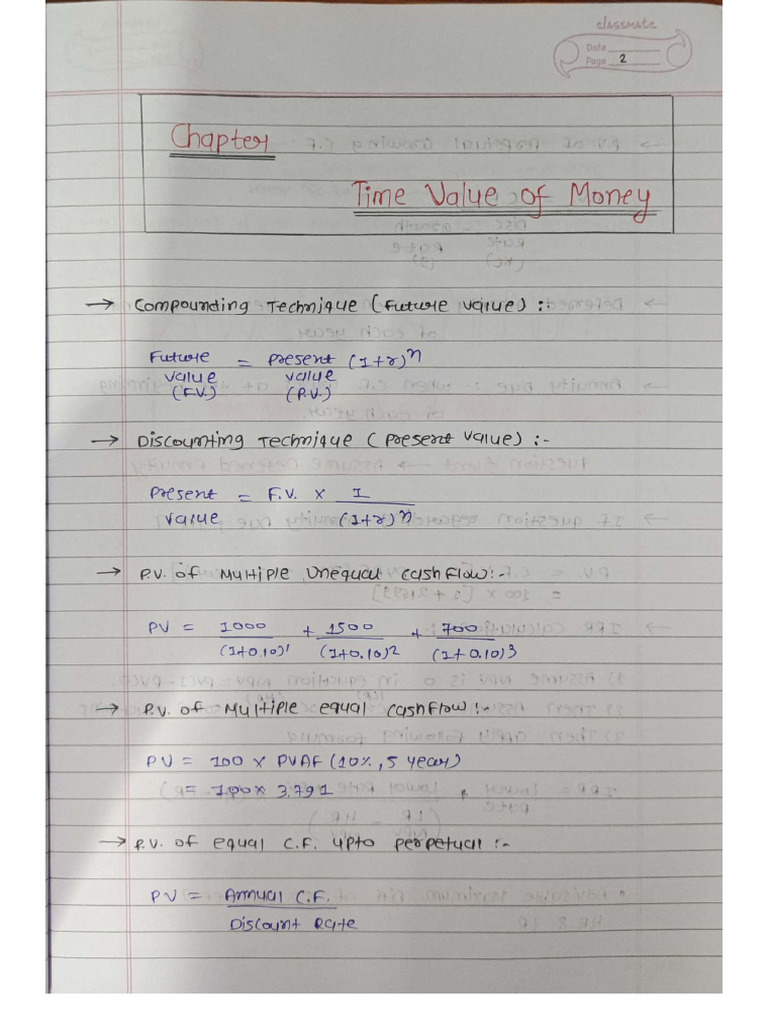 classmate
Date
Page 2
Chapter
Time Value of Money
→ Compounding Technique (Future Value) :-
Future Value (F.V.) = Present Value (P.V.) (1+r)^n
→ Discounting Technique (Present Value) :-
Present Value = F.V. × 1/(1+r)^n
→ P.V. of Multiple Unequal Cashflow:-
PV = 1000/(1+0.10)^1 + 1500/(1+0.10)^2 + 700/(1+0.10)^3
→ P.V. of Multiple equal Cashflow :-
PV = 100 × PVAF (10%, 5 year)
= 100 × 3.791
→ P.V. of equal C.F. upto perpetual :-
PV = Annual C.F. / Discount Rate